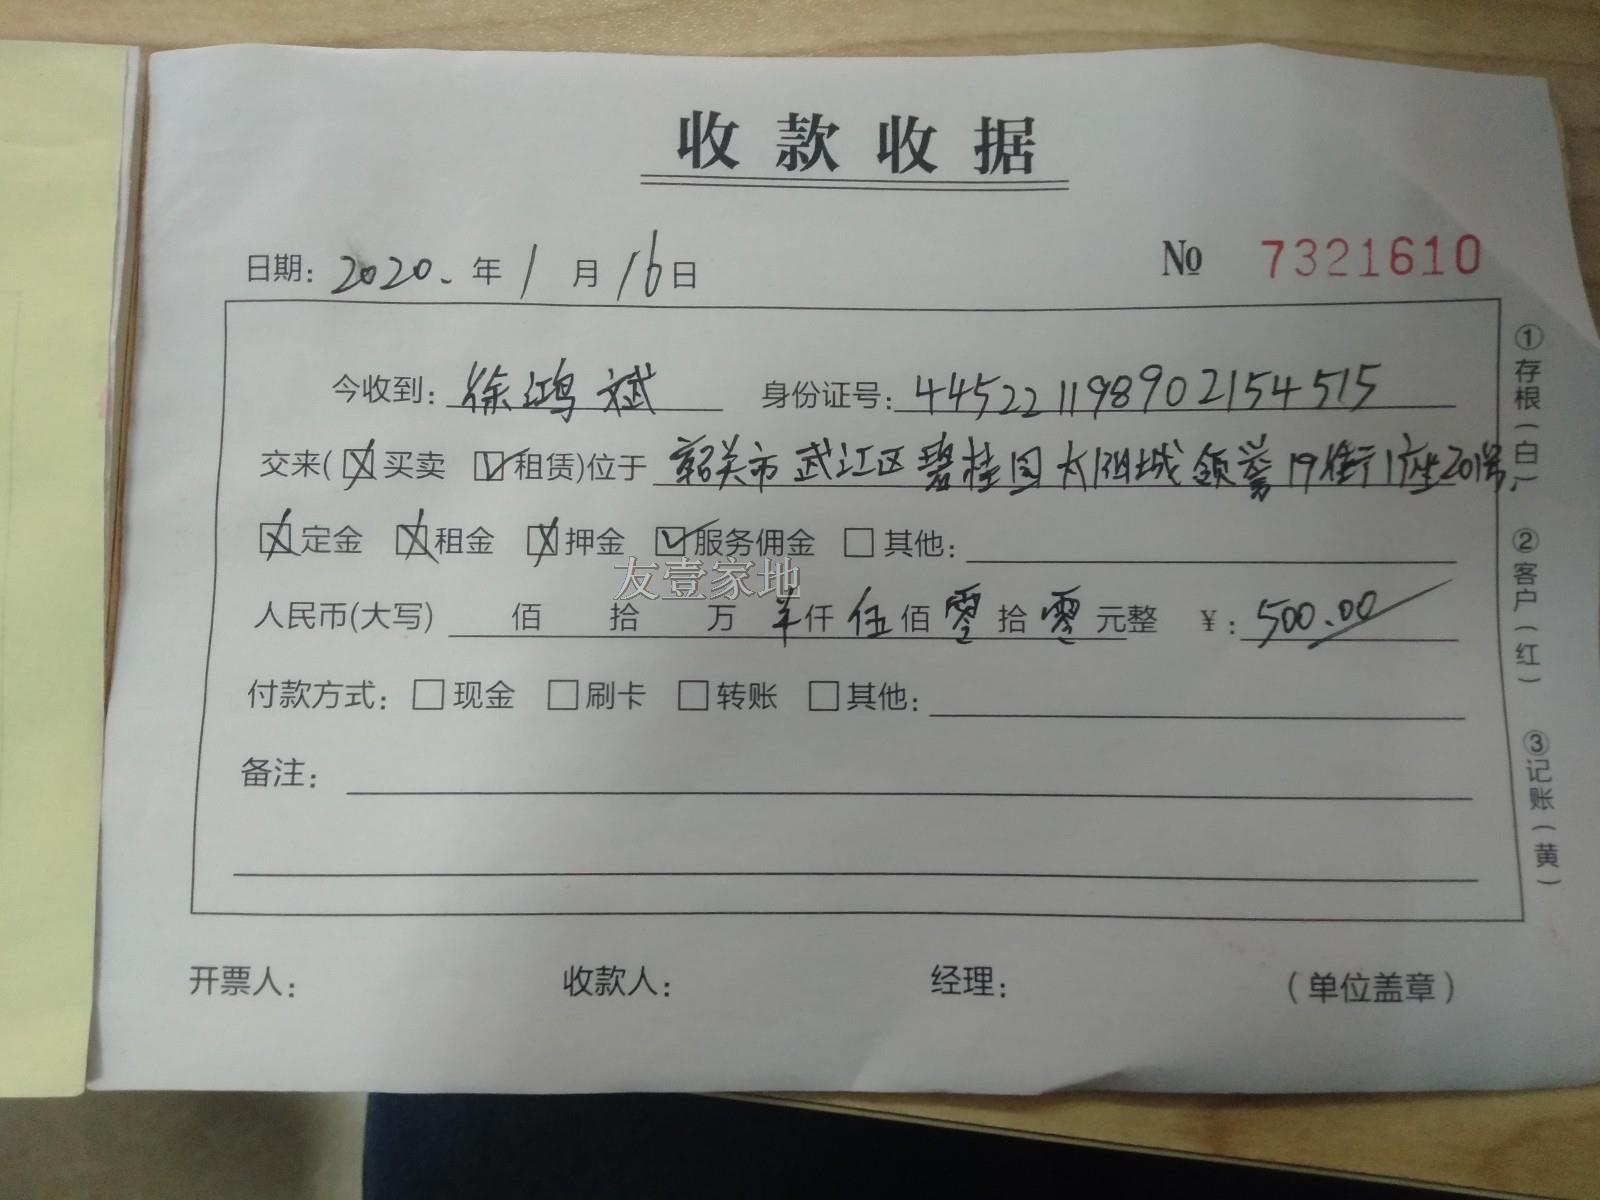 收款收据
日期: 2020. 年 1 月 16 日 № 7321610
今收到: 徐鸿斌 身份证号: 445221198902154515
交来(☒买卖 ☑租赁)位于 韶关市武江区碧桂园太阳城领誉19街1座201号.
☒定金 ☒租金 ☒押金 ☑服务佣金 □其他:
友壹家地
人民币(大写) 佰 拾 万 仟 伍佰 零拾 零元整 ¥: 500.00
付款方式: □现金 □刷卡 □转账 □其他:
备注:
开票人: 收款人: 经理: (单位盖章)
①存根(白)
②客户(红)
③记账(黄)